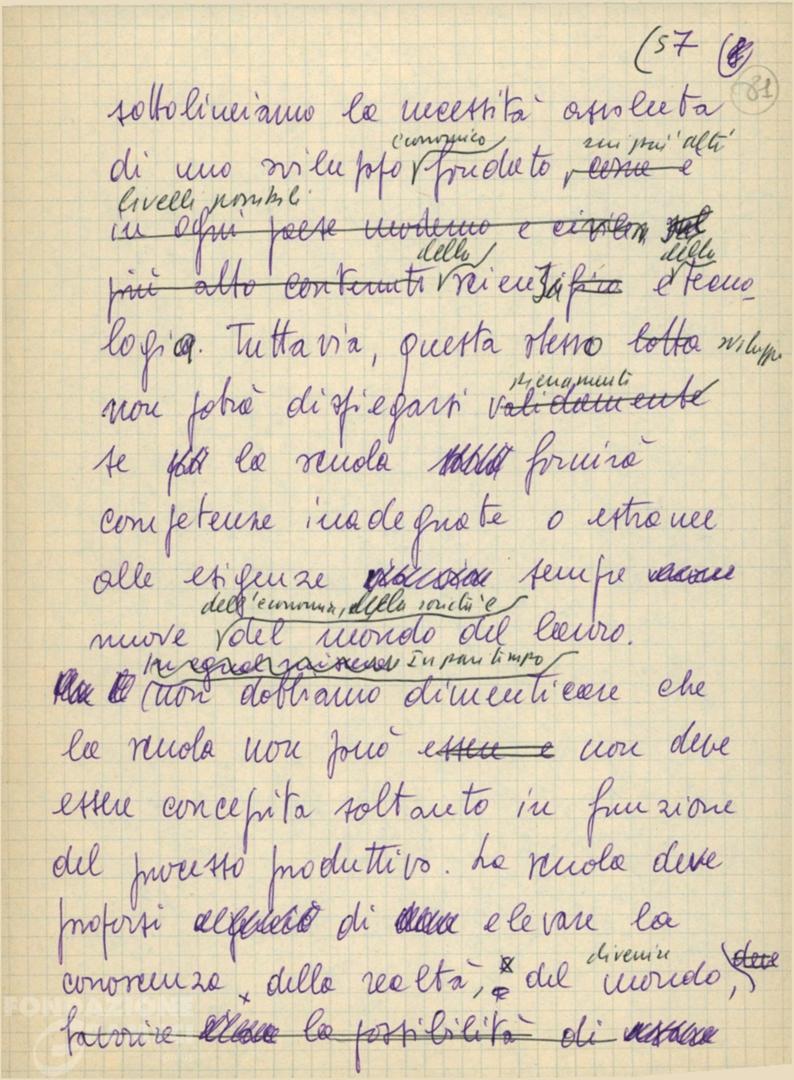 (57
81
sottolineiamo la necessità assoluta
economico sui più alti
di uno sviluppo fondato, come e
livelli possibili
in ogni paese moderno e civile, sul
della della
più alto contenuti scienza fico e tecno-
logia. Tuttavia, questo stesso lotta sviluppo
pienamente
non potrà dispiegarsi validamente
se la scuola fornirà
competenze inadeguate o estranee
alle esigenze sempre
dell'economia, della società e
nuove del mondo del lavoro.
In pari tempo
(non dobbiamo dimenticare che
la scuola non può essere e non deve
essere concepita soltanto in funzione
del processo produttivo. La scuola deve
proporsi di elevare la
divenire
conoscenza della realtà, e del mondo, deve
favorire la possibilità di
FONDAZIONE